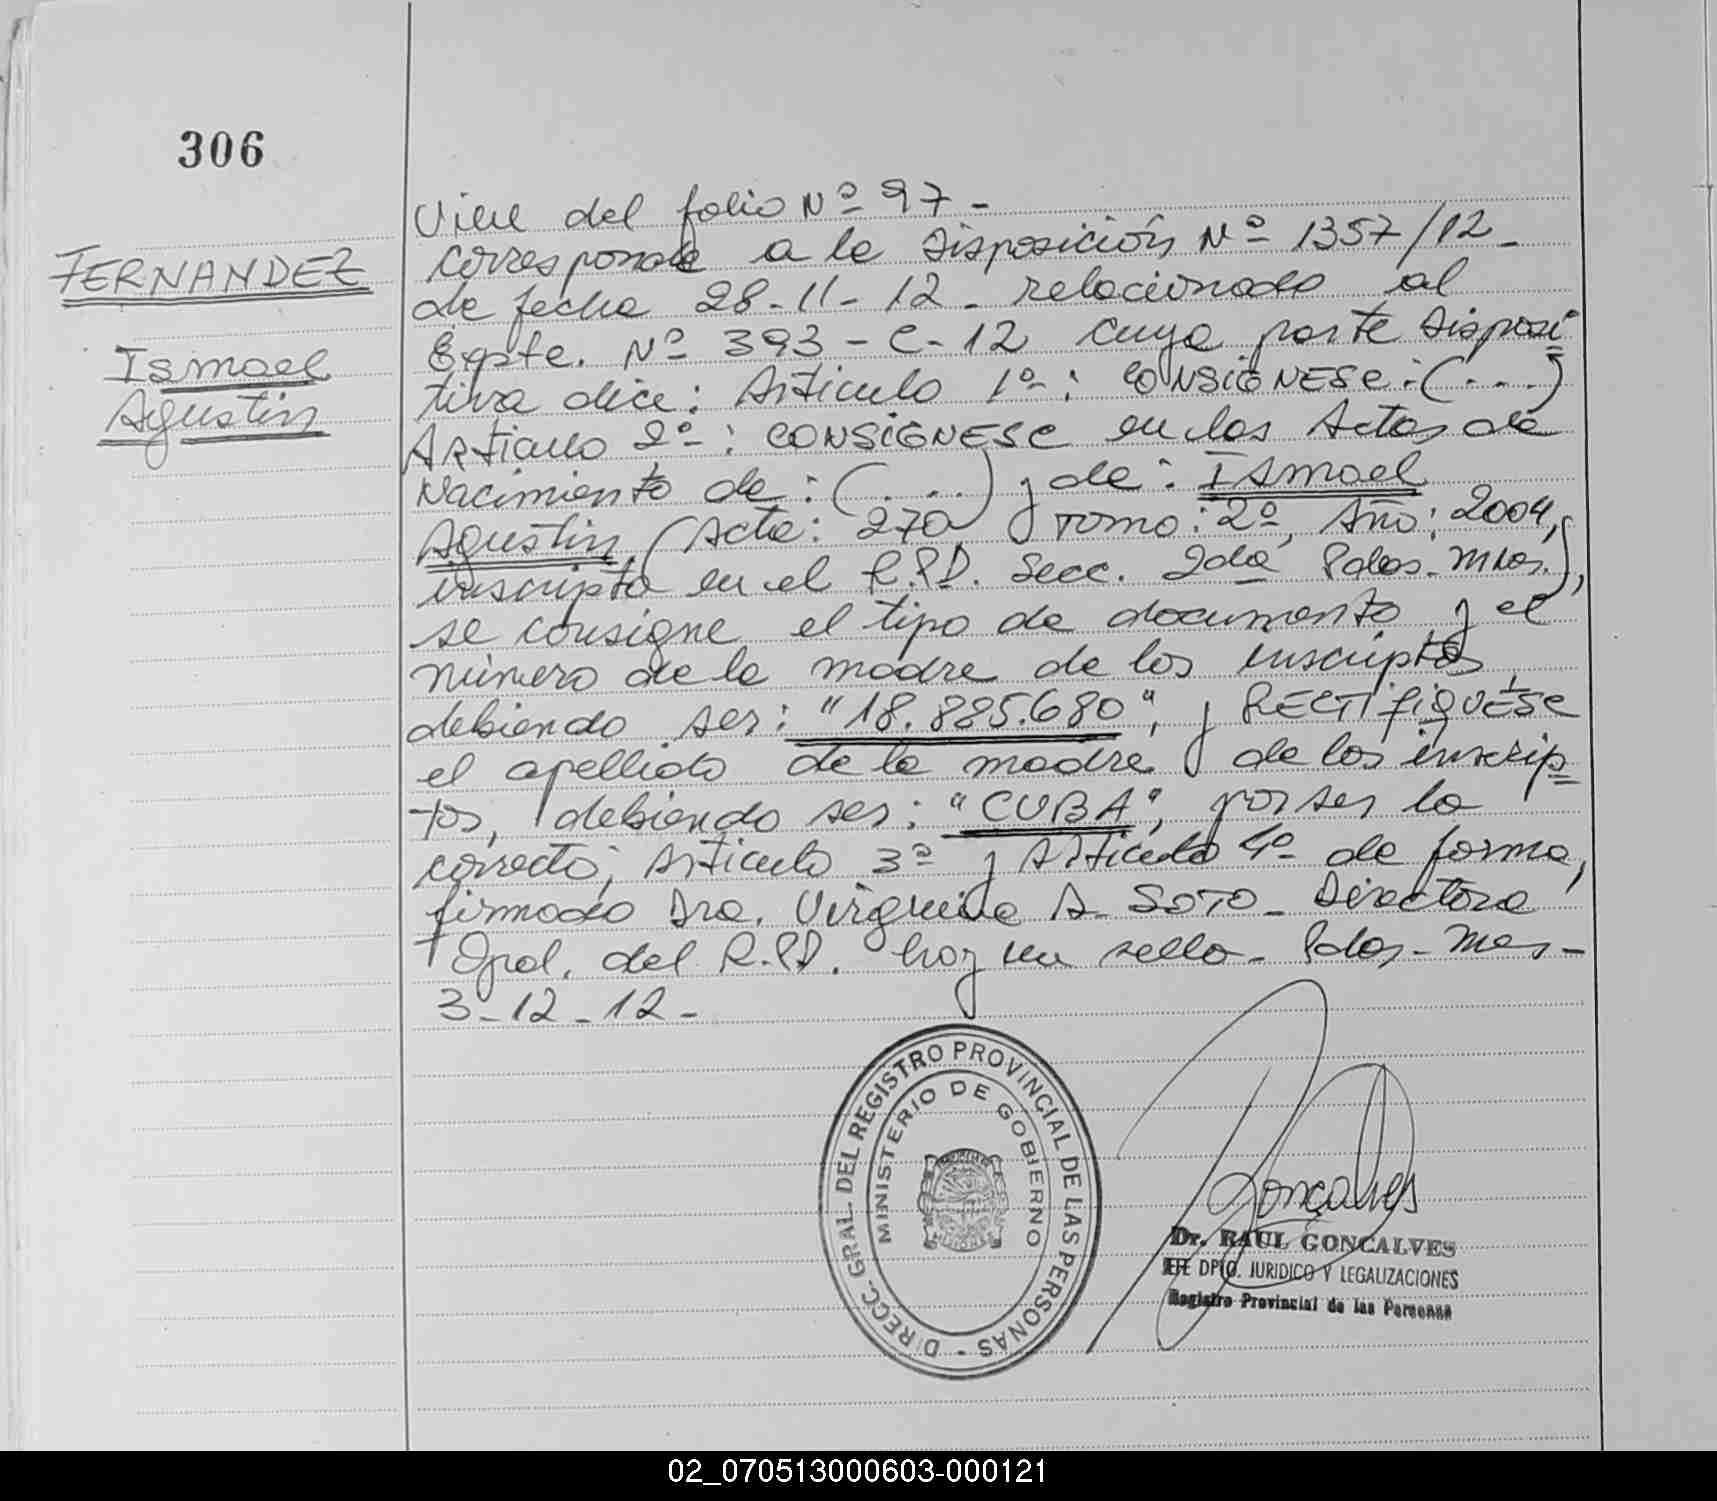 306
FERNANDEZ
Ismael
Agustin
Viene del folio Nº 97 -
corresponde a la Disposición Nº 1357/12 -
de fecha 28-11-12 - relacionado al
Expte. Nº 393-C-12 cuya parte Disposi
tiva dice: Articulo 1º: CONSIGNESE: (...)
Articulo 2º: CONSIGNESE en las Actas de
Nacimiento de: (...) y de: Ismael
Agustin (Acta: 270, Tomo: 2º, Año: 2004,
inscripta en el R.P.P. Secc. 2da Pdas. Mnes.),
se consigne el tipo de documento y el
número de la madre de los inscriptos
debiendo ser: "18.885.680", y RECTIFIQUESE
el apellido de la madre y de los inscrip
tos, debiendo ser: "CUBA", por ser lo
correcto; Articulo 3º y Articulo 4º de forma,
firmado Dra. Virginia A. SOTO - Directora
Gral. del R.P.P. hay un sello - Pdas - Mnes -
3-12-12 -
DIRECC. GRAL. DEL REGISTRO PROVINCIAL DE LAS PERSONAS -
MINISTERIO DE GOBIERNO
Goncalves
Dr. RAUL GONCALVES
JEFE DPTO. JURIDICO Y LEGALIZACIONES
Registro Provincial de las Personas
02_070513000603-000121